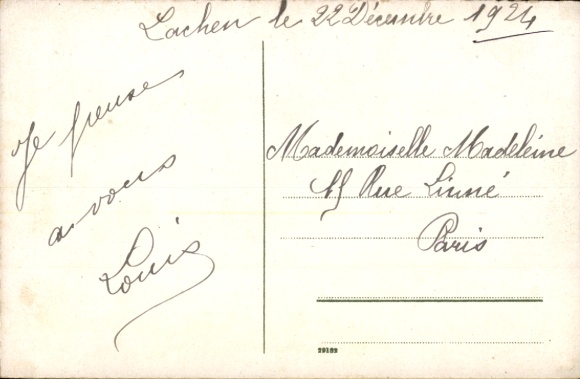 Lachen le 22 Décembre 1924
Je pense
à vous
Louis
Mademoiselle Madeleine
15 Rue Linné
Paris
29189